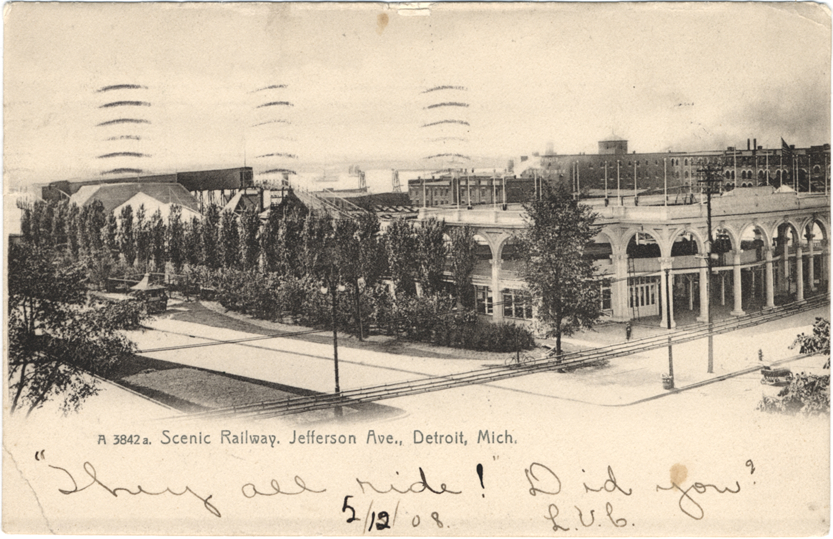 A 3842a. Scenic Railway. Jefferson Ave., Detroit, Mich.
"They all ride!" Did you?
5/12/08. L.V.C.